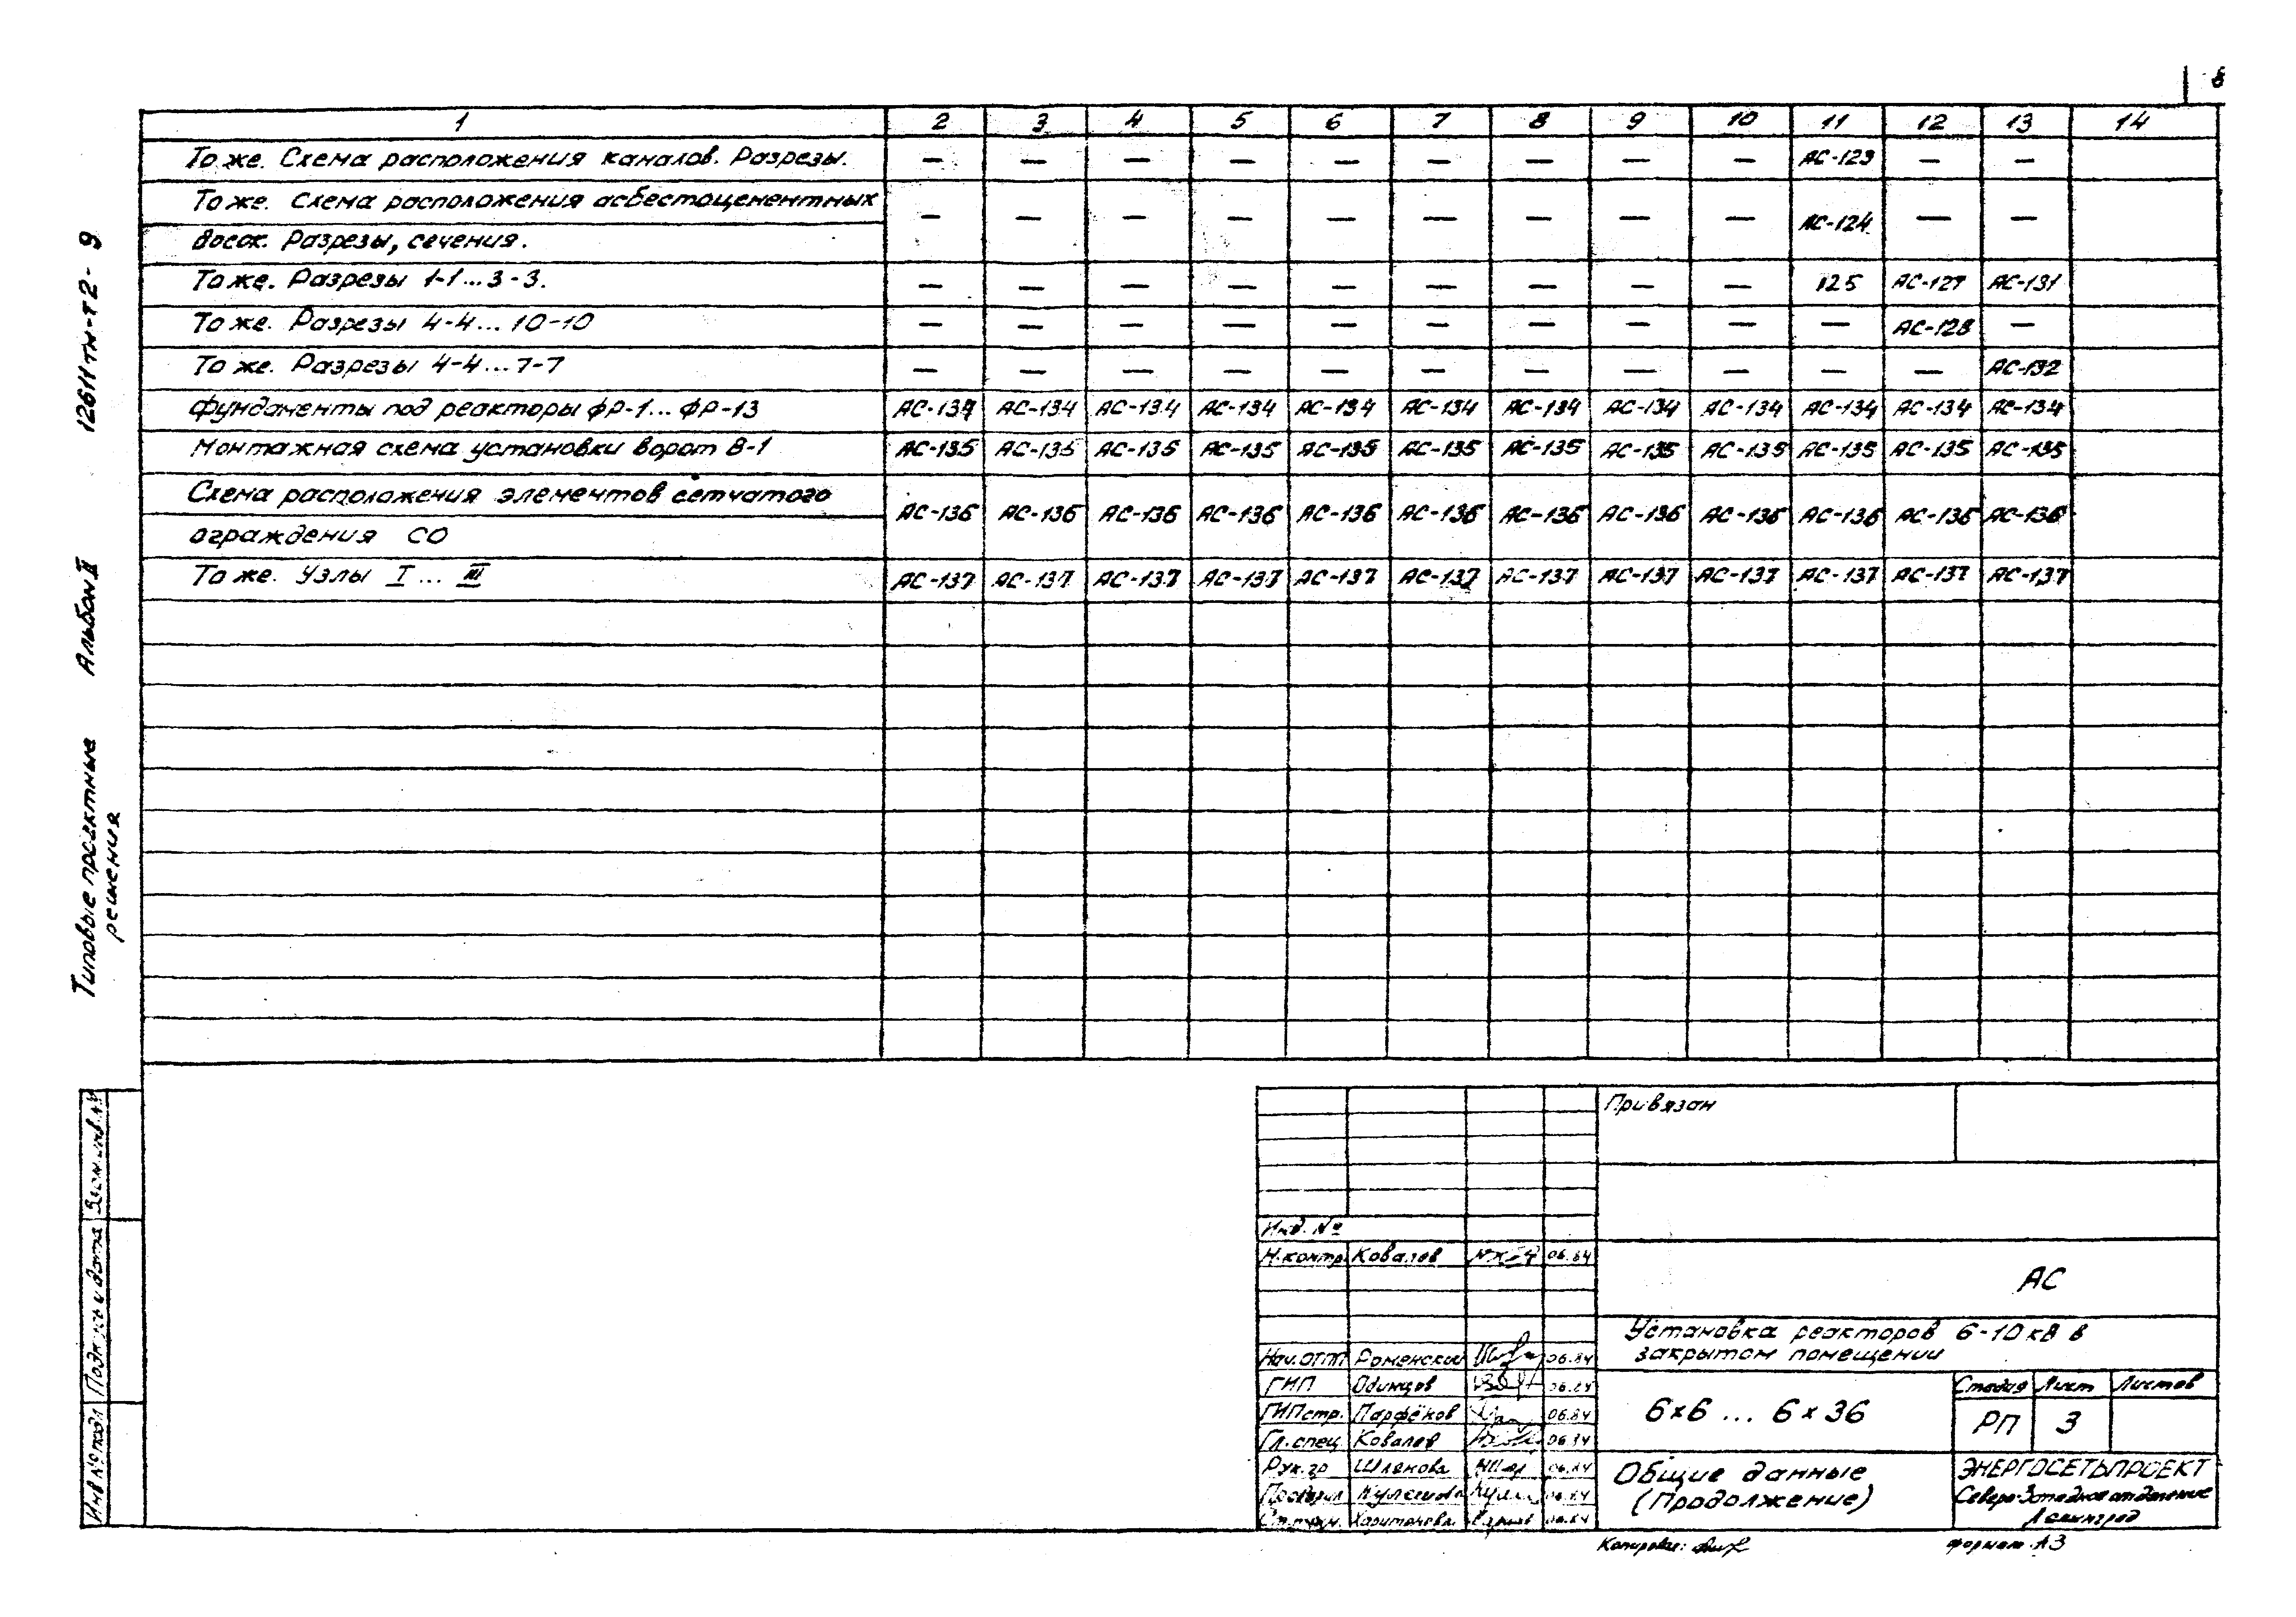 8
1 2 3 4 5 6 7 8 9 10 11 12 13 14
То же. Схема расположения каналов. Разрезы. — — — — — — — — — АС-123 — —
То же. Схема расположения асбестоцементных
досок. Разрезы, сечения. — — — — — — — — — АС-124 — —
То же. Разрезы 1-1...3-3. — — — — — — — — — 125 АС-127 АС-131
То же. Разрезы 4-4...10-10 — — — — — — — — — — АС-128 —
То же. Разрезы 4-4...7-7 — — — — — — — — — — — АС-132
Фундаменты под реакторы ФР-1...ФР-13 АС-134 АС-134 АС-134 АС-134 АС-134 АС-134 АС-134 АС-134 АС-134 АС-134 АС-134 АС-134
Монтажная схема установки ворот В-1 АС-135 АС-135 АС-135 АС-135 АС-135 АС-135 АС-135 АС-135 АС-135 АС-135 АС-135 АС-135
Схема расположения элементов сетчатого
ограждения СО АС-136 АС-136 АС-136 АС-136 АС-136 АС-136 АС-136 АС-136 АС-136 АС-136 АС-136 АС-136
То же. Узлы I...III АС-137 АС-137 АС-137 АС-137 АС-137 АС-137 АС-137 АС-137 АС-137 АС-137 АС-137 АС-137
Типовые проектные
решения
Альбом II
12611тм-т2-9
Взам. инв. №
Подпись и дата
Инв № подл
Привязан
Инв. №
Н.контр. Ковалев 06.84
АС
Установка реакторов 6-10 кВ в
закрытом помещении
Нач. ОТП Роменский 06.84
ГИП Одинцов 06.84
ГИПстр. Парфёнов 06.84
Гл.спец Ковалев 06.84
Рук.гр 06.84
06.84
06.84
6×6 ... 6×36
Стадия Лист Листов
РП 3
Общие данные
(Продолжение)
ЭНЕРГОСЕТЬПРОЕКТ
Северо-Западное отделение
Ленинград
Копировал:
формат А3